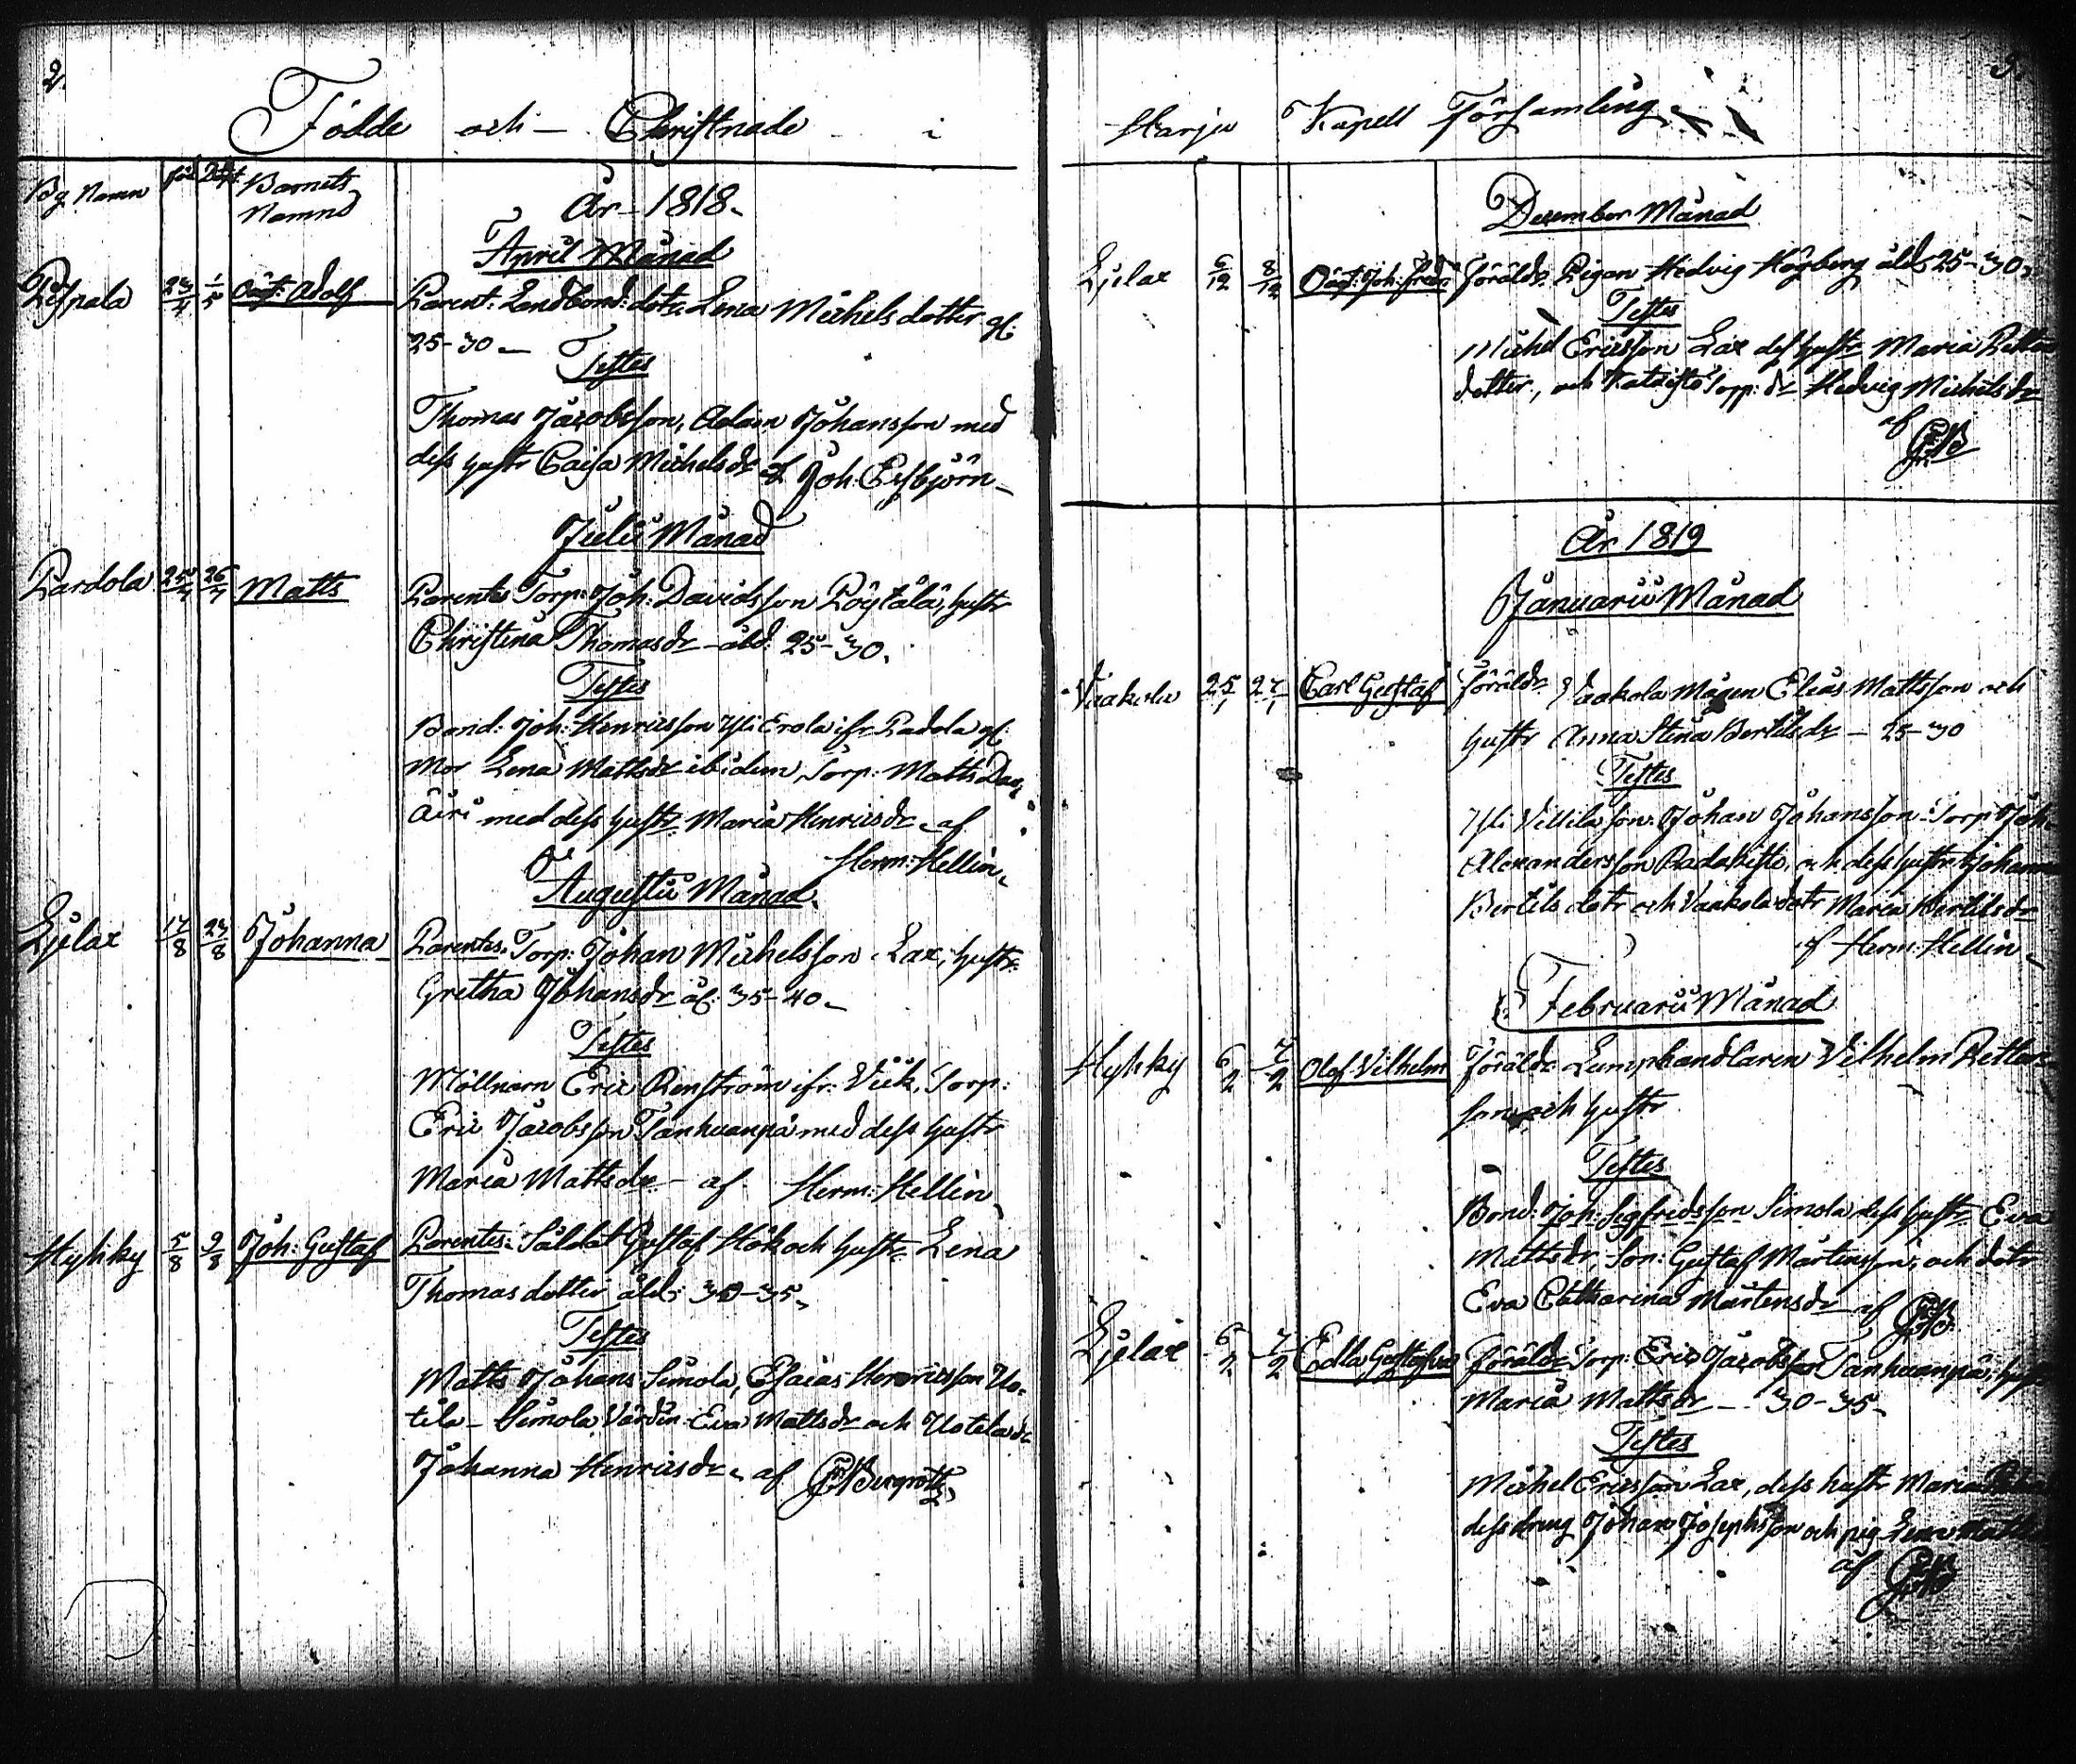 2.
Födde och Christnade i
By. Namn föd. döpt. Barnets
Namn
År 1818.
April Månad
23/4 1/5 Oägt: Adolf Parent: Landbond: dotr Lena Michels dotter
25-30
Testes
Thomas Jacobsson, Adam Johansson med
dess hustr Caisa Michelsdr af Joh: Esbjörn
Julii Månad
Pardola 25/7 26/7 Matts Parentes Torp: Joh: Davidsson Pöytälä, hustr
Christina Thomasdr åld: 25-30.
Testes
Bond: Joh: Henricsson Yli Erola ifr Padola
mor Lena Mattsdr ibidem, Torp: Matts
Äiri med dess hustr Maria Henricsdr af
Herm: Hellin
Augustii Månad
Ljelax 17/8 23/8 Johanna Parentes Torp: Johan Michelsson Lax, hustr
Gretha Johansdr ål: 35-40
Testes
Möllnarn Eric Renström ifr: Viik, Torp:
Eric Jacobsson Tanhuanpä med dess hustr
Maria Mattsdr af Herm: Hellin
Hyhky 5/8 9/8 Joh: Gustaf Parentes: Saldat Gustaf Hök och hustr Lena
Thomas dotter åld: 30-35
Testes
Matts Johans Simola, Esaias Henricsson Uo-
tila Simola Värdin Eva Mattsdr och Uotila dr
Johanna Henricsdr af Bergroth
3.
Harju Kapell Församling
December Månad
Ljelax 6/12 8/12 Oägt: Joh: Föräldr Pigan Hedvig Högberg åld 25-30
Testes
Michel Ericsson Lax dess hustr Maria
dotter, och Torp: dr Hedvig Michelsdr
af
År 1819
Januarii Månad
Vaakola 25/1 27/1 Carl Gustaf Föräldr Vaakola Mågen Elias Mattsson och
hustr Anna Stina Bertilsdr 25-30
Testes
Yli Villila son Johan Johansson Torp Joh:
Alexandersson och dess hustr Johanna
Bertils dotr och Vaakola dotr Maria Bertilsdr
af Herm: Hellin
Februarii Månad
Hyhky 6/2 7/2 Olof Vilhelm Föräldr Lumphandlaren Vilhelm
son och hustr
Testes
Bond: Joh: Sigfredsson Simola dess hustr Eva
Mattsdr, Son: Gustaf Mårtensson, och dotr
Eva Catharina Mårtensdr af
Ljelax 6/2 7/2 Edla Gustafva Föräldr Torp: Eric Jacobsson Tanhuanpä, hustr
Maria Mattsdr 30-35
Testes
Michel Ericsson Lax, dess hustr Maria
dess dreng Johan Josephsson och pig Lena
af